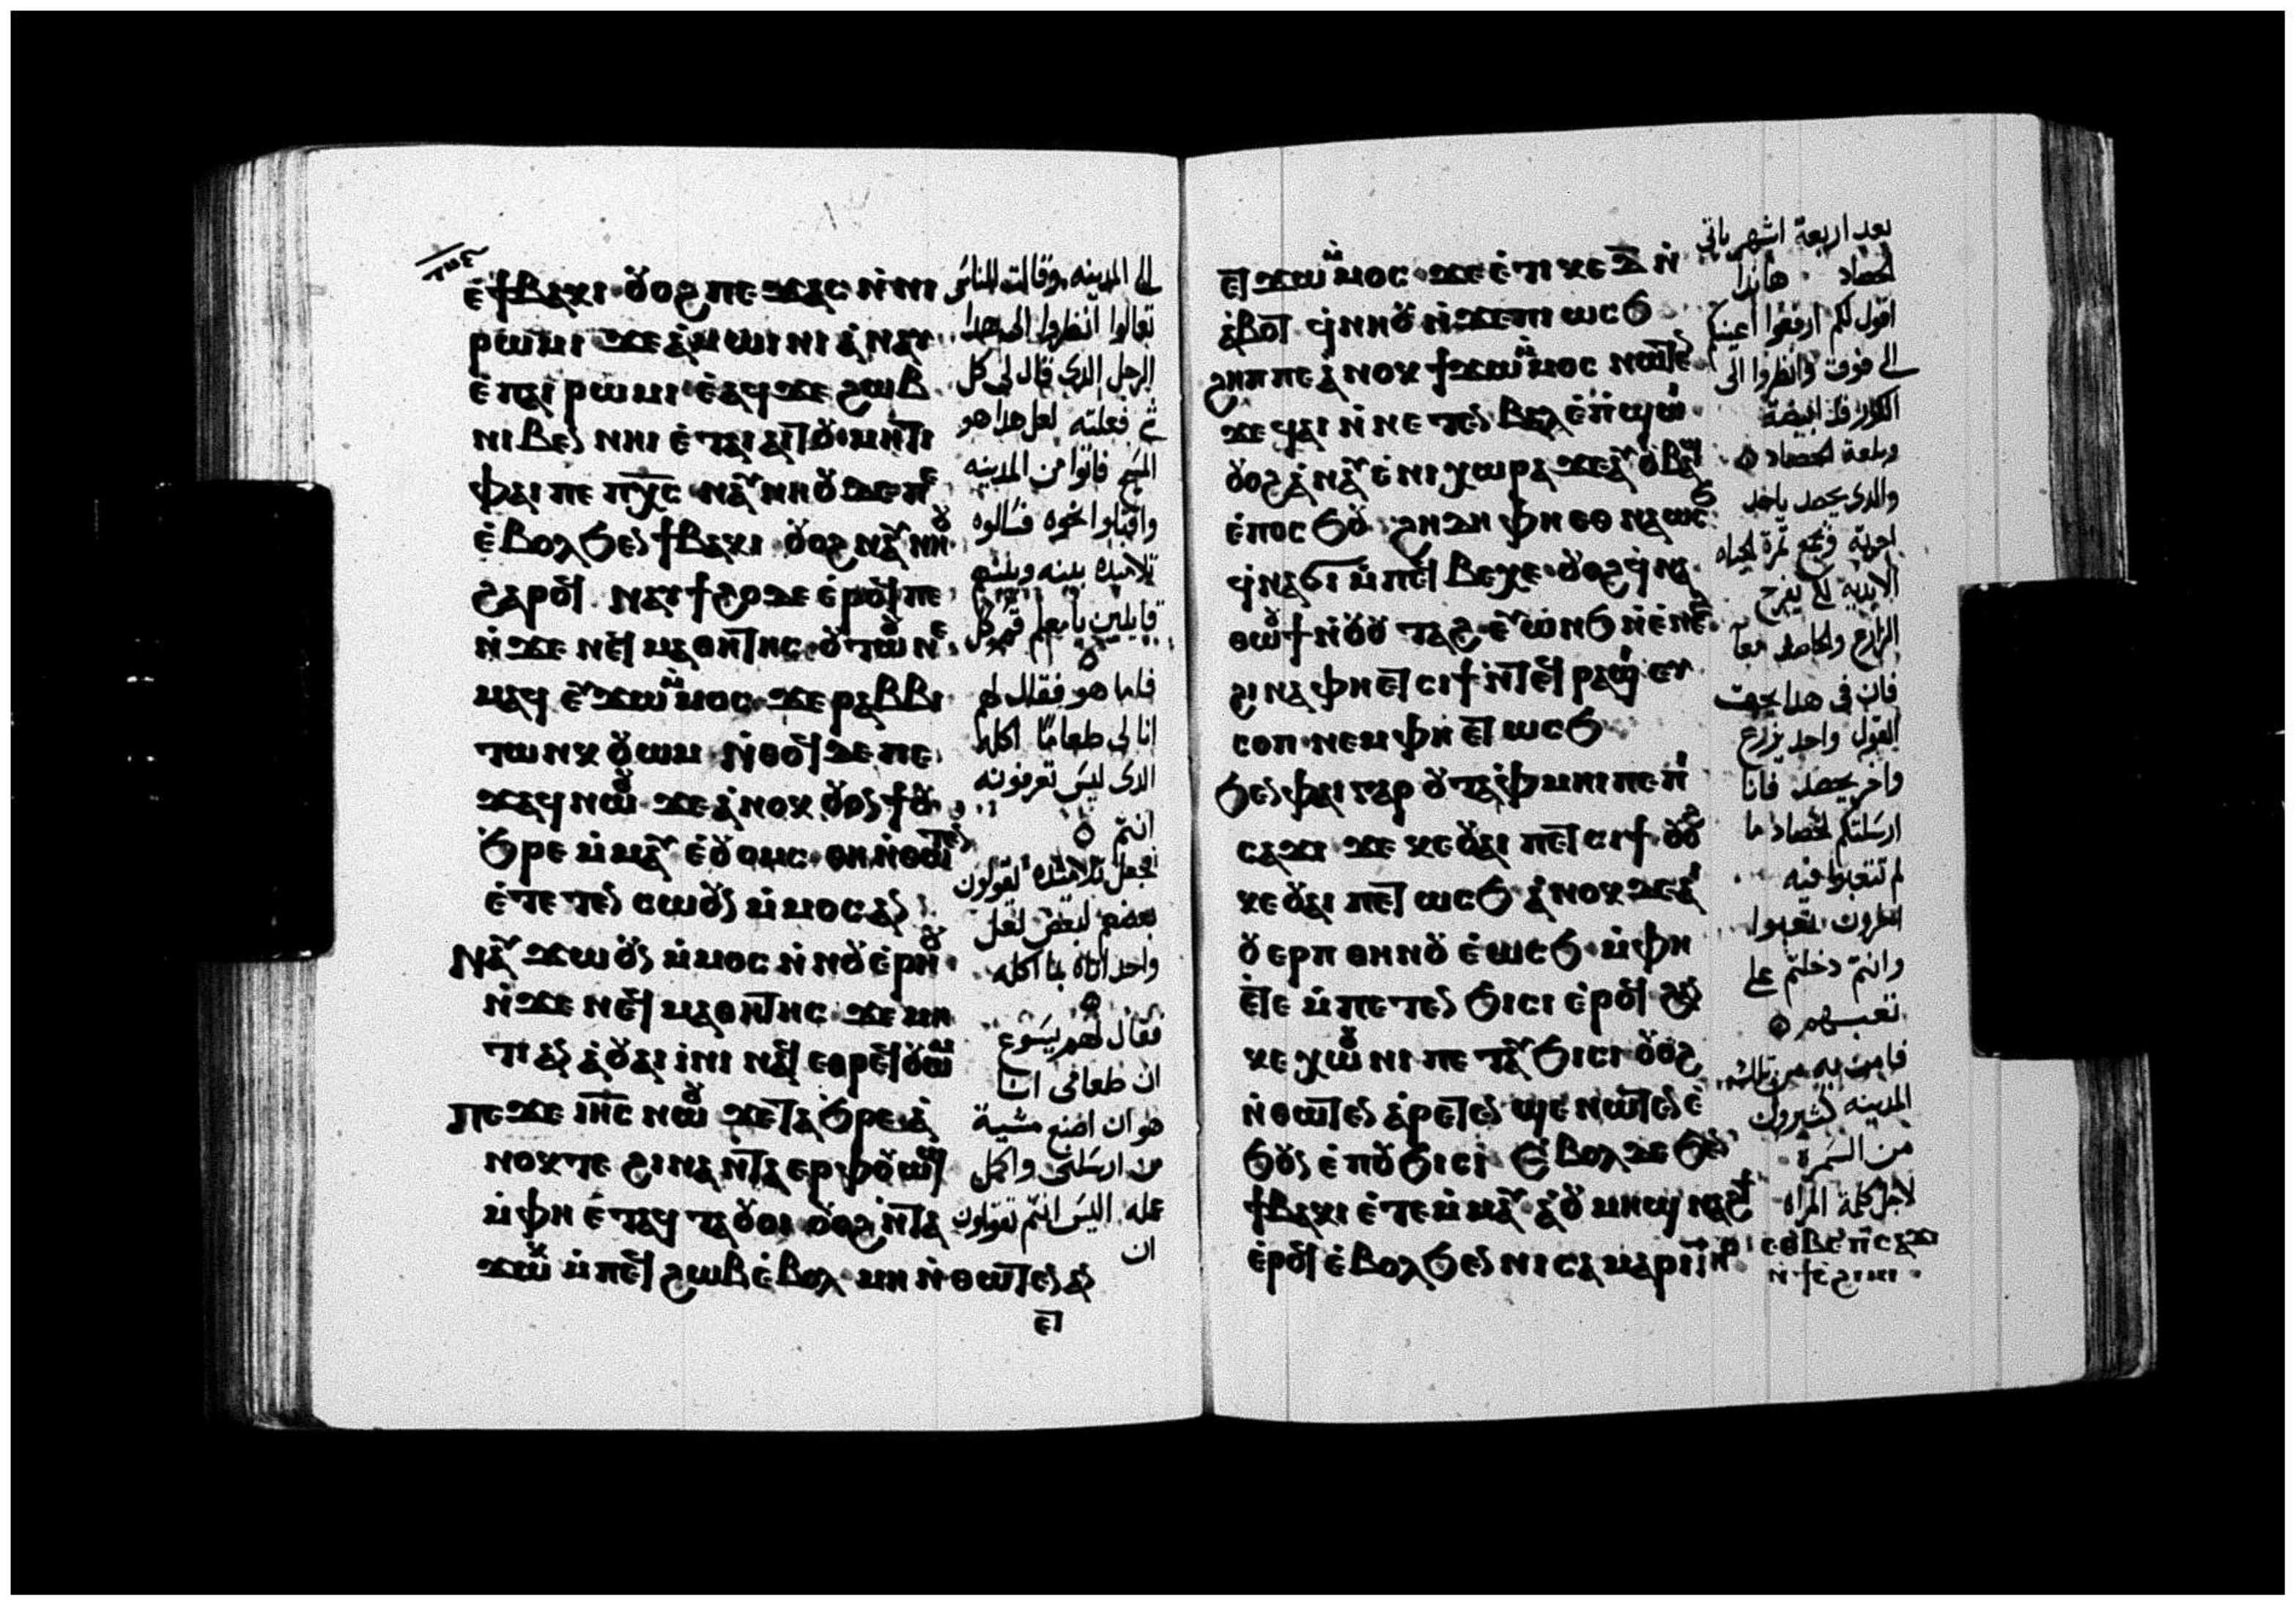 ⲉ̀ϯⲃⲁⲕⲓ ⲟ̆ⲟϩ ⲡⲉϫⲁⲥ ⲛ̀ⲛⲓ
ⲣⲱⲙⲓ ϫⲉ ⲁ̀ⲙⲱⲓⲛⲓ ⲁ̀ⲛⲁⲩ
ⲉ̀ⲡⲁⲓⲣⲱⲙⲓ ⲉ̀ⲁϥϫⲉ ϩⲱⲃ
ⲛⲓⲃⲉⲛ ⲛⲏⲓ ⲉ̀ⲧⲁⲓⲁⲓⲧⲟ̆ ⲙⲏⲧⲓ
ⲫⲁⲓ ⲡⲉ ⲡⲭ̅ⲥ
ⲉ̀ⲃⲟⲗϧⲉⲛ ϯⲃⲁⲕⲓ ⲟ̆ⲟϩ
ϩⲁⲣⲟϥ ⲛⲁⲩϯϩⲟ ⲇⲉ ⲉ̀ⲣⲟϥ ⲡⲉ
ⲛ̀ϫⲉ ⲛⲉϥⲙⲁⲑⲏⲧⲏⲥ
ⲙⲁϥ ⲉⲩϫⲱ ⲙ̀ⲙⲟⲥ ϫⲉ ⲣⲁⲃⲃⲓ
ⲧⲱⲛⲕ ⲟ̆ⲱⲙ ⲛ̀ⲑⲟϥ ⲇⲉ ⲡⲉ
ϫⲁϥ ⲛⲱⲟ̆ ϫⲉ ⲁ̀ⲛⲟⲕ ⲟ̆ⲟⲛϯ ⲟ̆
ϧⲣⲉ ⲙ̀ⲙⲁⲩ ⲉ̀ⲟ̆ⲟⲙⲥ
ⲉ̀ⲧⲉⲧⲉⲛ ⲥⲱⲟ̆ⲛ ⲙ̀ⲙⲟⲥ ⲁⲛ
ⲛⲁⲩϫⲱ ⲟ̆ⲛ ⲙ̀ⲙⲟⲥ ⲛ̀ⲛⲟ̆ⲉ̀ⲣⲏⲟ̆
ⲛ̀ϫⲉ ⲛⲉϥⲙⲁⲑⲏⲧⲏⲥ ϫⲉ ⲙⲏ
ⲧⲓ ⲁⲛ ⲁ̀ⲟ̆ⲁⲓ ⲓ̀ⲛⲓ ⲛⲁϥ ⲉⲑⲣⲉϥⲟ̆ⲱⲙ
ⲡⲉϫⲉ ⲓⲏ̅ⲥ ⲛⲱⲟ̆ ϫⲉ ⲧⲁϧⲣⲉ ⲁ̀
ⲛⲟⲕ ⲧⲉ ϩⲓⲛⲁ ⲛ̀ⲧⲁⲉⲣ ⲫⲟ̆ⲱϣ
ⲙ̀ⲫⲏ ⲉ̀ⲧⲁϥⲧⲁⲟ̆ⲟⲓ ⲟ̆ⲟϩ ⲛ̀ⲧⲁ
ϫⲱⲕ ⲙ̀ⲡⲉϥϩⲱⲃ ⲉ̀ⲃⲟⲗ ⲙⲏ ⲛ̀ⲑⲱⲧⲉⲛ ⲁⲛ
ⲉⲧ
الى المدينه وقالت للناس
تعالوا انظروا الى هدا
الرجل الدى قال لى كل
شي فعلته لعل هدا هو
المسيح فاتوا من المدينه
واقبلوا نحوه فسالوه
تلاميذه بينه وبينهم
قايلين يا معلم قم كل
فاما هو فقال لهم
انا لى طعامًا اكله
الدى ليس تعرفونه
انتم
فجعل تلاميذه يقولون
بعضهم لبعض لعل
واحد اتاه بما اكله
فقال لهم يسوع
ان طعامى انا
هو ان اصنع مشية
من ارسلنى واكمل
عمله اليس انتم تقولون
ان
ⲉⲧϫⲱ ⲙ̀ⲙⲟⲥ ϫⲉ ⲉ̀ⲧⲓ ⲕⲉ ⲇ̅ ⲛ̀
ⲁ̀ⲃⲟⲧ ϥ̀ⲛⲏⲟ̆ ⲛ̀ϫⲉ ⲡⲓⲱⲥϧ
ϩⲏⲡⲡⲉ ⲁ̀ⲛⲟⲕ ϯϫⲱ ⲙ̀ⲙⲟⲥ ⲛⲱⲧⲉⲛ
ϫⲉ ϥⲁⲓ ⲛ̀ⲛⲉⲧⲉⲛⲃⲁⲗ ⲉ̀ⲡϣⲱⲓ
ⲟ̆ⲟϩ ⲁ̀ⲛⲁⲩ ⲉ̀ⲛⲓⲭⲱⲣⲁ ϫⲉ ⲁⲩⲟ̆ⲃⲁϣ
ⲉ̀ⲡⲟⲥϧⲟ̆ ϩⲏⲇⲏ ⲫⲏ ⲉⲑⲛⲁⲱⲥϧ
ϥ̀ⲛⲁϭⲓ ⲙ̀ⲡⲉϥⲃⲉⲭⲉ ⲟ̆ⲟϩ ϥ̀ⲛⲁ
ⲑⲱⲟ̆ϯ ⲛ̀ⲟ̆ⲟ̆ⲧⲁϩ ⲉⲩⲱ̀ⲛϧ ⲛ̀ⲉ̀ⲛⲉϩ
ϩⲓⲛⲁ ⲫⲏ ⲉⲧⲥⲓϯ ⲛ̀ⲧⲉϥⲣⲁϣⲓ ⲉⲩ
ⲥⲟⲡ ⲛⲉⲙ ⲫⲏ ⲉⲧⲱⲥϧ
ϧⲉⲛ ⲫⲁⲓ ⲅⲁⲣ ⲟ̆ⲧⲁⲫⲙⲏⲓ ⲡⲉ ⲡⲓ
ⲥⲁϫⲓ ϫⲉ ⲕⲉⲟ̆ⲁⲓ ⲡⲉⲧⲥⲓϯ ⲟ̆ⲟϩ
ⲕⲉⲟ̆ⲁⲓ ⲡⲉⲧⲱⲥϧ ⲁ̀ⲛⲟⲕ ⲇⲉ ⲁⲓ
ⲟ̆ⲉⲣⲡ ⲑⲏⲛⲟ̆ ⲉ̀ⲱⲥϧ ⲙ̀ⲫⲏ
ⲉ̀ⲧⲉ ⲙ̀ⲡⲉⲧⲉⲛϧⲓⲥⲓ ⲉ̀ⲣⲟϥ ϩⲁⲛ
ⲕⲉⲭⲱⲟ̆ⲛⲓ ⲡⲉⲧⲁⲩϧⲓⲥⲓ ⲟ̆ⲟϩ
ⲛ̀ⲑⲱⲧⲉⲛ ⲁ̀ⲣⲉⲧⲉⲛϣⲉ ⲛⲱⲧⲉⲛ ⲉ̀
ϧⲟ̆ⲛ ⲉ̀ⲡⲟ̆ϧⲓⲥⲓ ⲉ̀ⲃⲟⲗ ⲇⲉ ϧⲉⲛ
ϯⲃⲁⲕⲓ ⲉ̀ⲧⲉ ⲙ̀ⲙⲁⲩ ⲁ̀ⲟ̆ⲙⲏϣ ⲛⲁϩϯ
ⲉ̀ⲣⲟϥ ⲉ̀ⲃⲟⲗϧⲉⲛ ⲛⲓⲥⲁⲙⲁⲣⲓⲧⲏⲥ
ⲉⲑⲃⲉ ⲡⲥⲁϫⲓ
ⲛ̀ϯⲥϩⲓⲙⲓ
بعد اربعة اشهر ياتى
الحصاد هاندا
اقول لكم ارفعوا اعينكم
الى فوق وانظروا الى
الكور قد ابيضة
وبلغة الحصاد
والدى يحصد ياخد
اجرته ويجمع ثمرة لحياه
الابديه لكى يفرح
الزارع والحاصد معا
فان فى هدا يحق
القول واحد يزرع
واخر يحصد فانا
ارسلتكم لحصاد ما
لم تتعبوا فيه
اخرون تعبوا
وانتم دخلتم على
تعبهم
فامن به من تلك
المدينه كثيرون
من السمرة
لاجل كلمة المراه